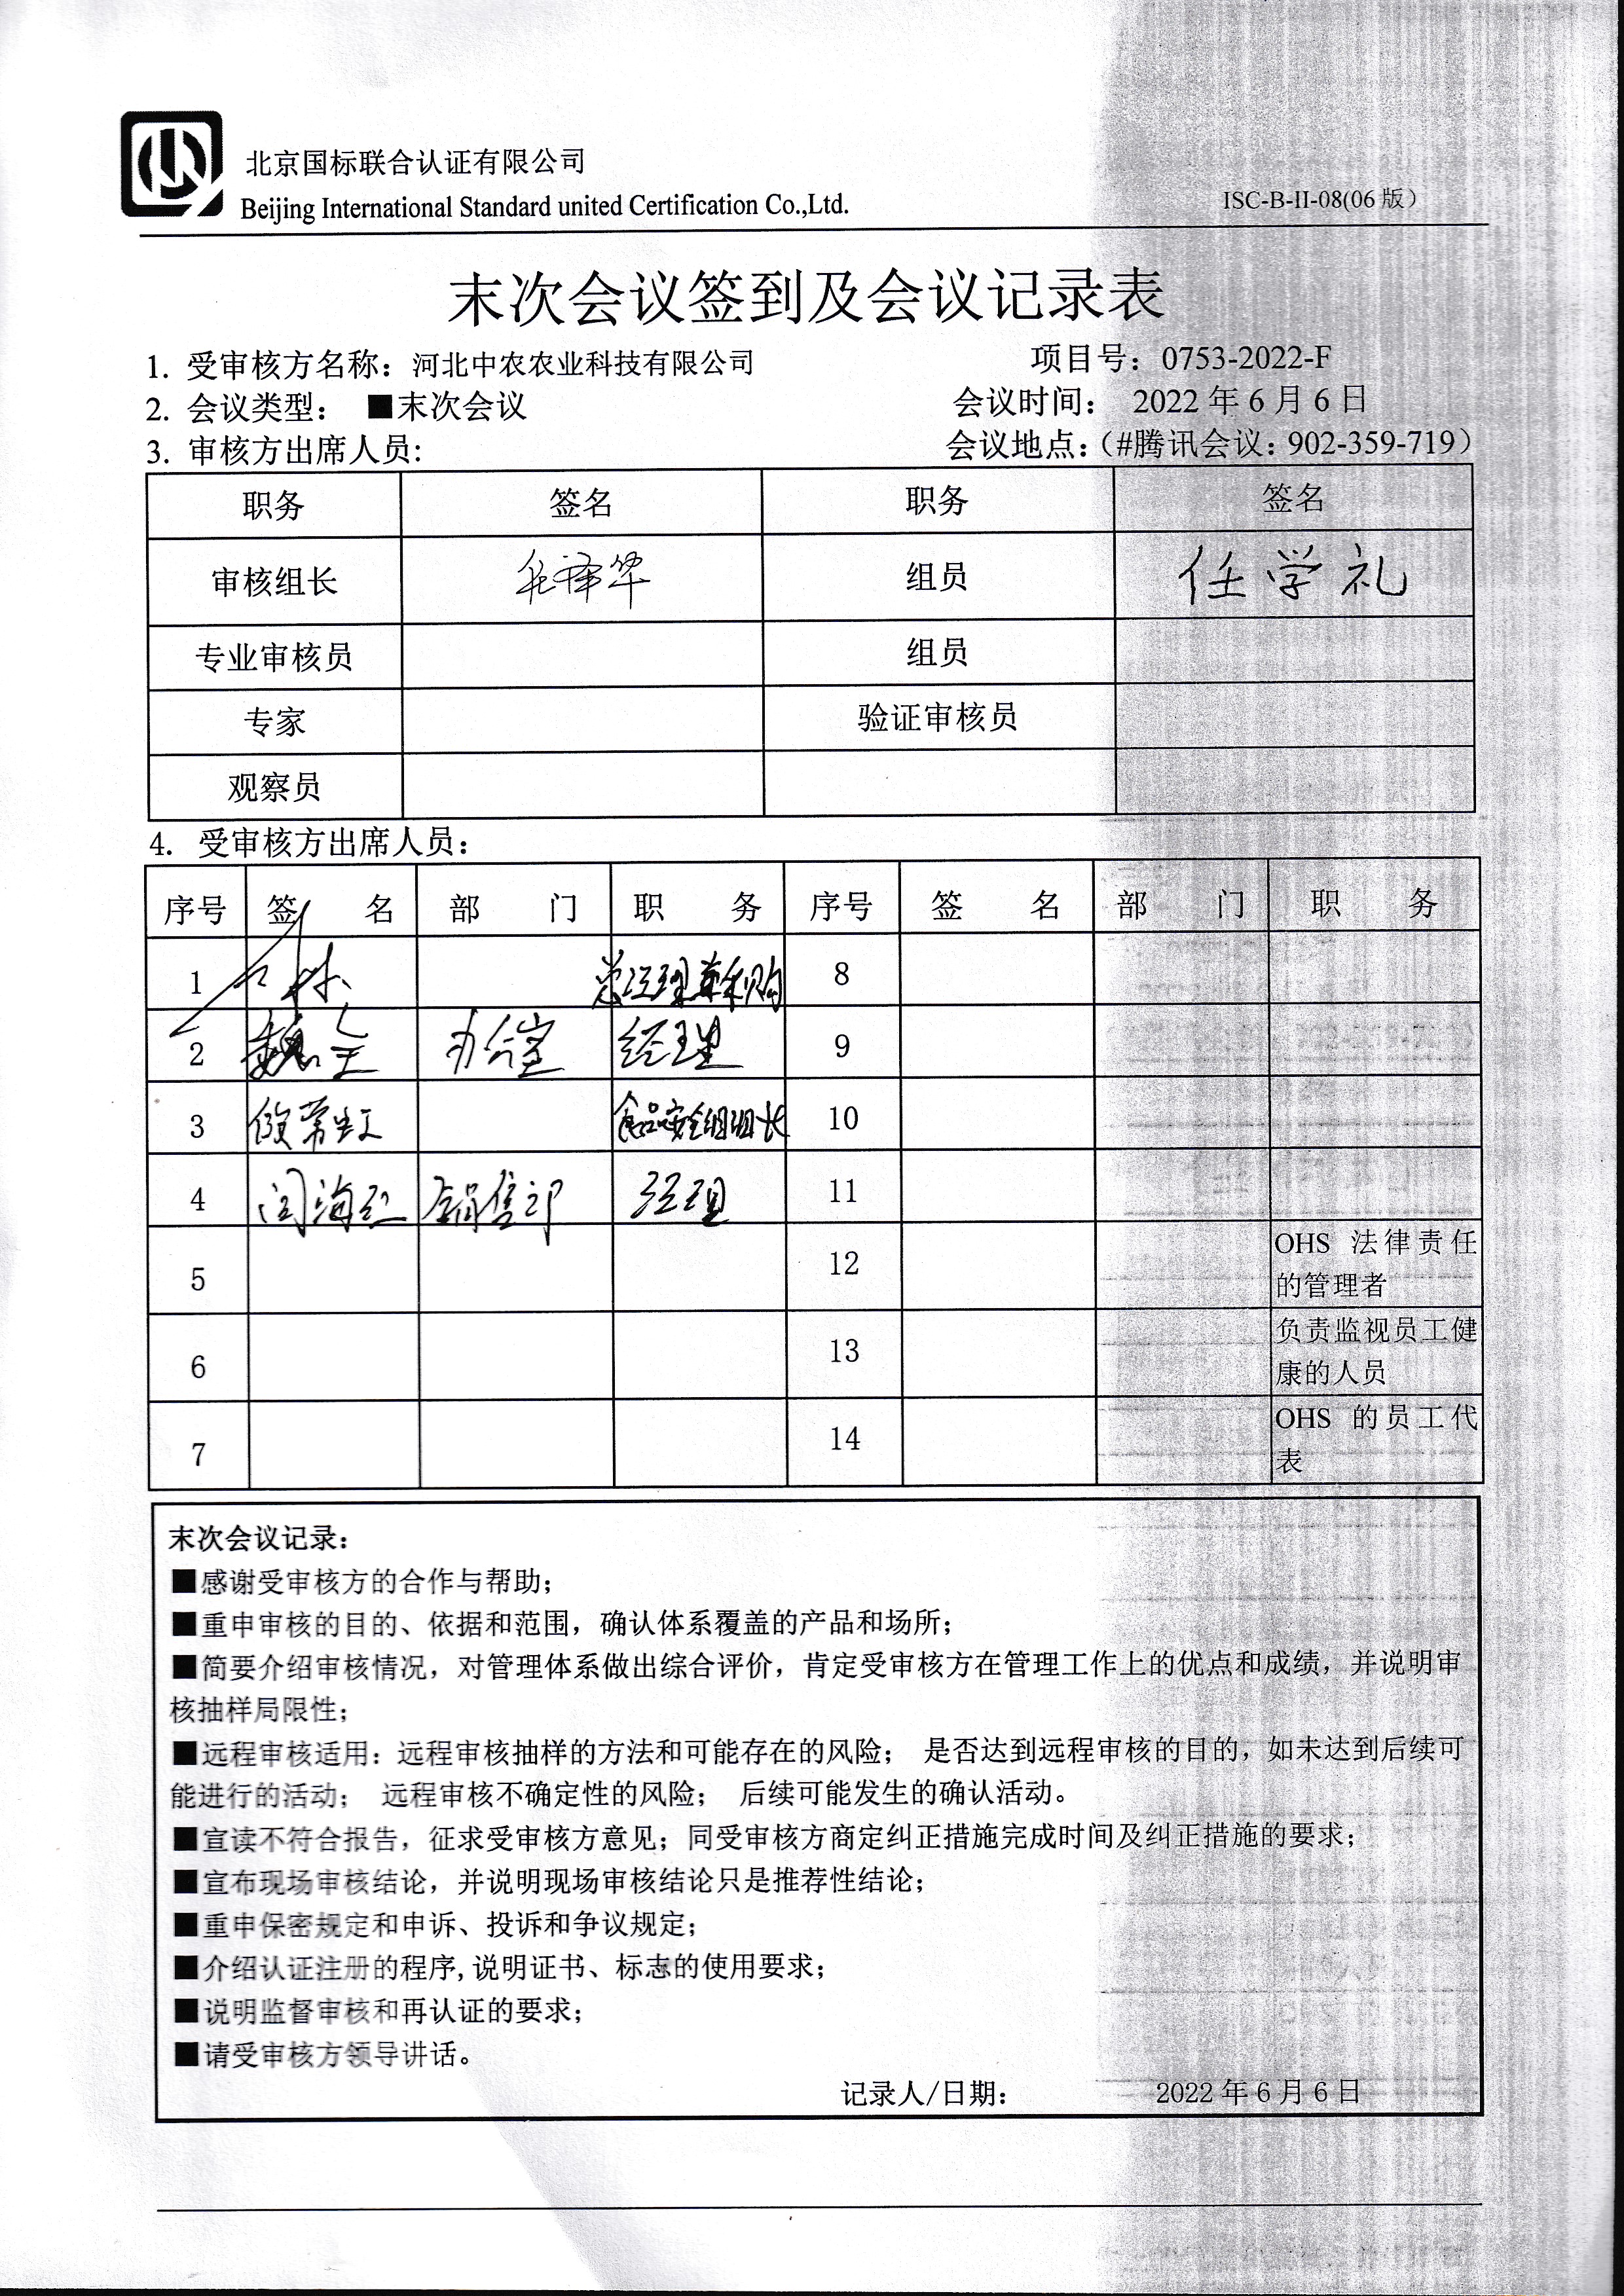 北京国标联合认证有限公司
Beijing International Standard united Certification Co.,Ltd.
ISC-B-II-08(06版)
末次会议签到及会议记录表
1. 受审核方名称：河北中农农业科技有限公司 项目号：0753-2022-F
2. 会议类型： ■末次会议 会议时间： 2022年6月6日
3. 审核方出席人员: 会议地点：（#腾讯会议：902-359-719）
职务 签名 职务 签名
审核组长 组员 任学礼
专业审核员 组员
专家 验证审核员
观察员
4. 受审核方出席人员：
序号 签 名 部 门 职 务 序号 签 名 部 门 职 务
1 总经理兼采购 8
2 办公室 经理 9
3 食品安全组组长 10
4 闫海红 销售部 经理 11
5 12 OHS 法律责任
的管理者
6 13 负责监视员工健
康的人员
7 14 OHS 的员工代
表
末次会议记录：
■感谢受审核方的合作与帮助；
■重申审核的目的、依据和范围，确认体系覆盖的产品和场所；
■简要介绍审核情况，对管理体系做出综合评价，肯定受审核方在管理工作上的优点和成绩，并说明审
核抽样局限性；
■远程审核适用：远程审核抽样的方法和可能存在的风险； 是否达到远程审核的目的，如未达到后续可
能进行的活动； 远程审核不确定性的风险； 后续可能发生的确认活动。
■宣读不符合报告，征求受审核方意见；同受审核方商定纠正措施完成时间及纠正措施的要求；
■宣布现场审核结论，并说明现场审核结论只是推荐性结论；
■重申保密规定和申诉、投诉和争议规定；
■介绍认证注册的程序,说明证书、标志的使用要求；
■说明监督审核和再认证的要求；
■请受审核方领导讲话。
记录人/日期： 2022年6月6日